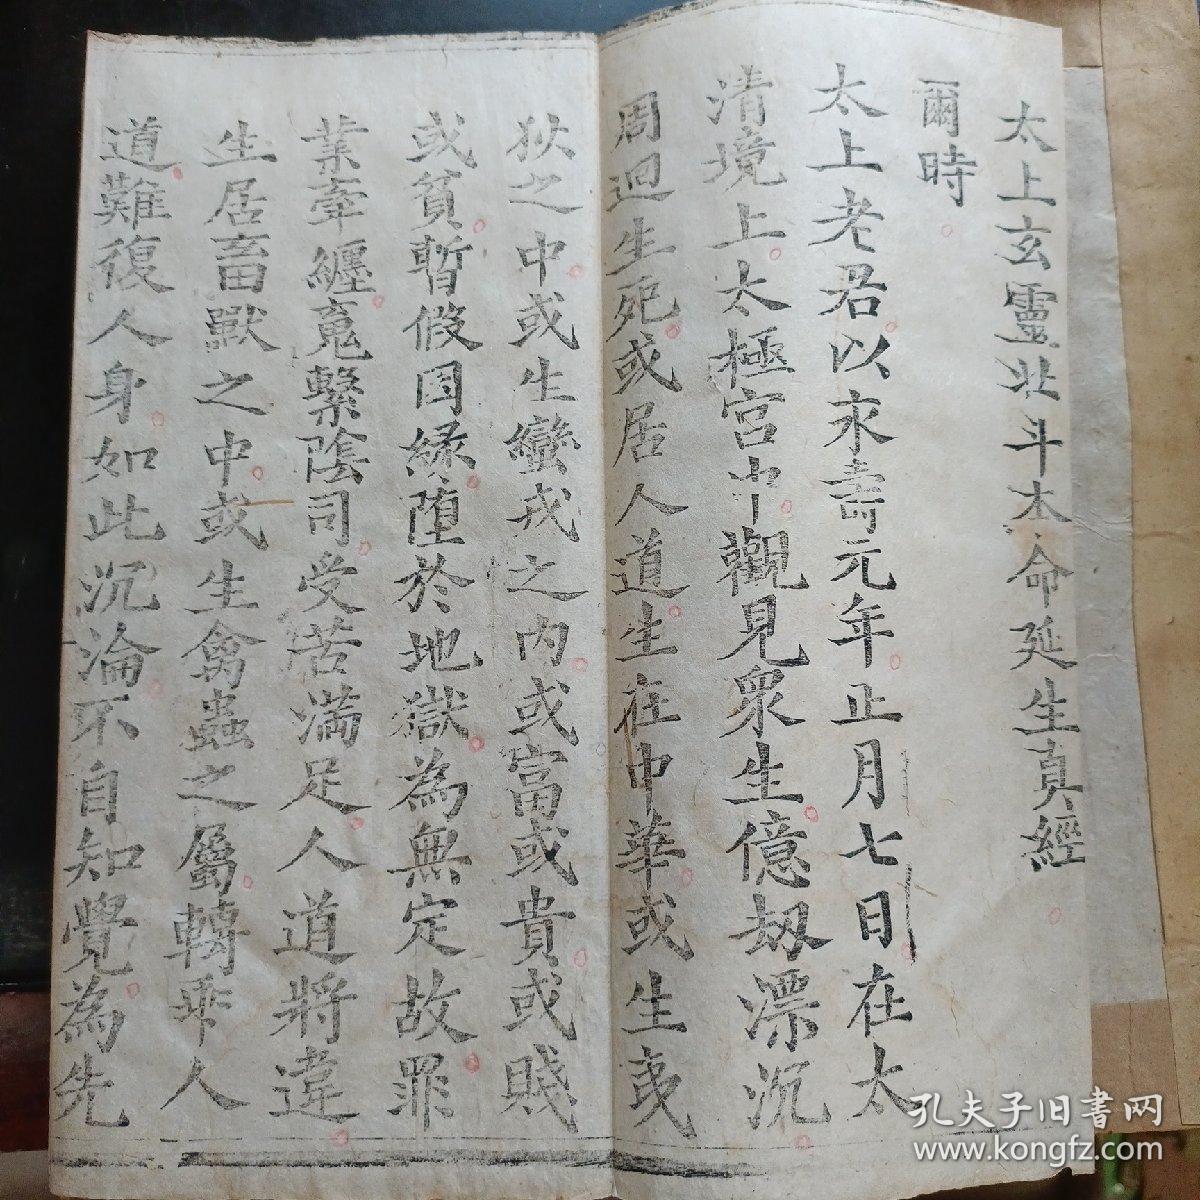 太上玄靈北斗本命延生真經
爾時
太上老君以永壽元年正月七日在太
清境上太極宮中觀見眾生億劫漂沉
周迴生死或居人道生在中華或生夷
狄之中或生蠻戎之内或富或貴或賤
或貧暫假因緣墮於地獄為無定故罪
業牽纏䰟繫陰司受苦滿足人道將違
生居畜獸之中或生禽蟲之屬轉乖人
道難復人身如此沉淪不自知覺為先
孔夫子旧書网
www.kongfz.com